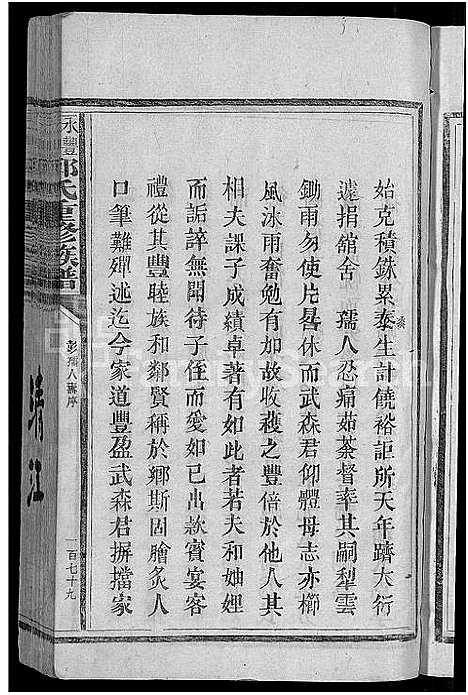 始克積銖累泰生計饒裕詎所天年躋大衍
遽捐舘舍 孺人忍痛茹荼督率其嗣犁雲
鋤雨勿使片晷休而武森君仰體母志亦櫛
風沐雨奮勉有加故收穫之豐倍於他人其
相夫課子成績卓著有如此者若夫和妯娌
而詬誶無聞待子侄而愛如己出款賓宴客
禮從其豐睦族和鄰賢稱於鄉斯固膾炙人
口筆難殫述迄今家道豐盈武森君摒擋家
永豐郭氏重修族譜
彭孺人壽序
一百七十九
清江